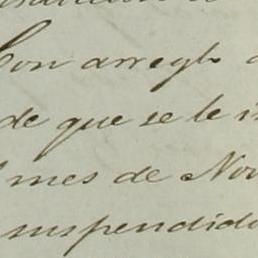 Con arreglo
de que se le
mes de Nov
suspendido